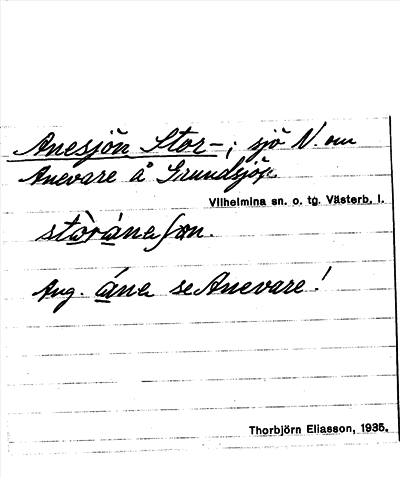 Anesjön Stor-; sjö N. om
Anevare å Grundsjön.
Vilhelmina sn. o. tg. Västerb. l.
Ang. áne se Anevare!
Thorbjörn Eliasson, 1935.